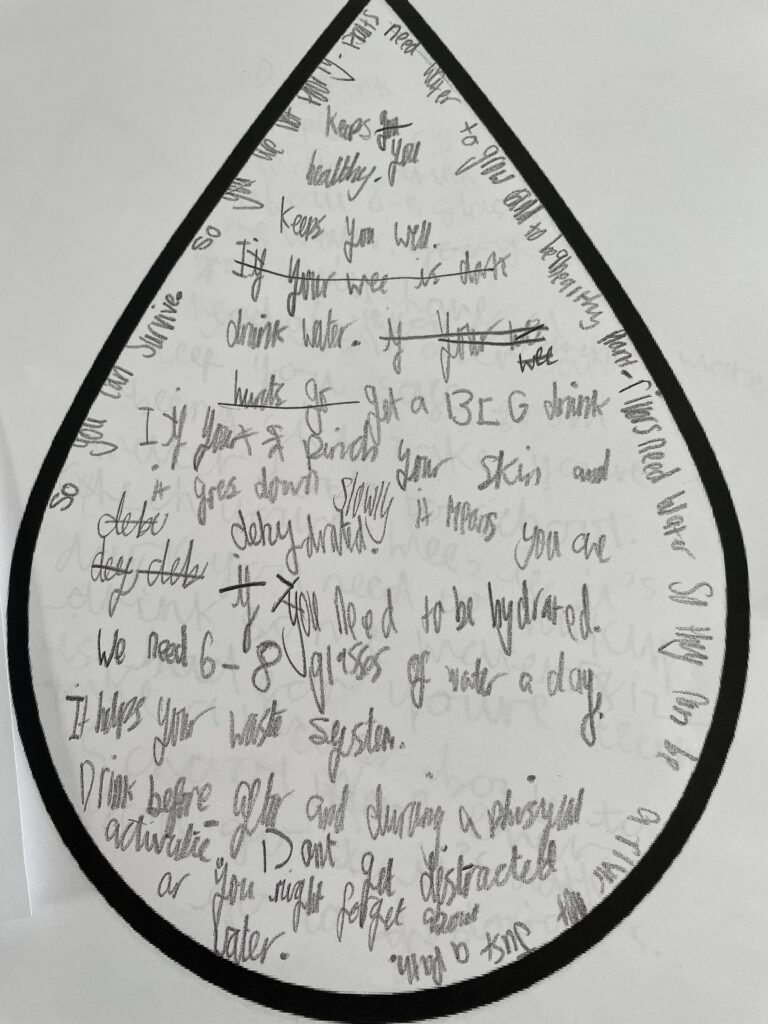 Keeps you
healthy. you
Keeps you well.
Iy your wee is dark
drink water. if your
wee
hurts go get a BIG drink
If your pinch your skin and
it goes down slowly it means you are
debu dehydrated!
if you need to be hydrated.
We need 6-8 glasses of water a day.
It helps your waste system.
Drink before after and durring a phisycul
activatie. Dont get distracted
or you might forget about
water.
So you can survive.
So you are not thirsty. Plants need water to grow and to be a healthy plant. rivers need water So they can be a river not Just a path.